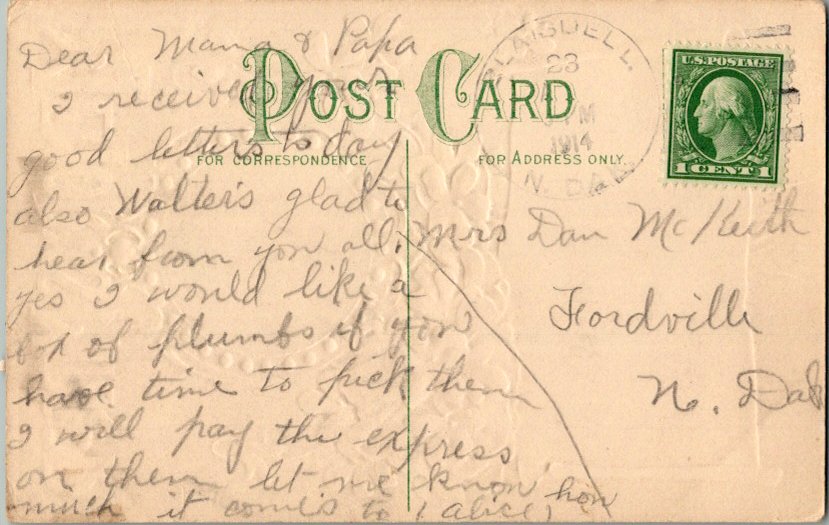 Dear Mama & Papa
I received your
good letters to day
also Walters glad to
hear from you all.
yes I would like a
bx of plumbs if you
have time to pick them
I will pay the express
on them let me know hon
much it comes to (alice)
POST CARD
FOR CORRESPONDENCE
FOR ADDRESS ONLY.
BLAISDELL.
23
PM
1914
N. DAK.
U.S. POSTAGE
1 CENT 1
Mrs Dan McKeith
Fordville
N. Dak